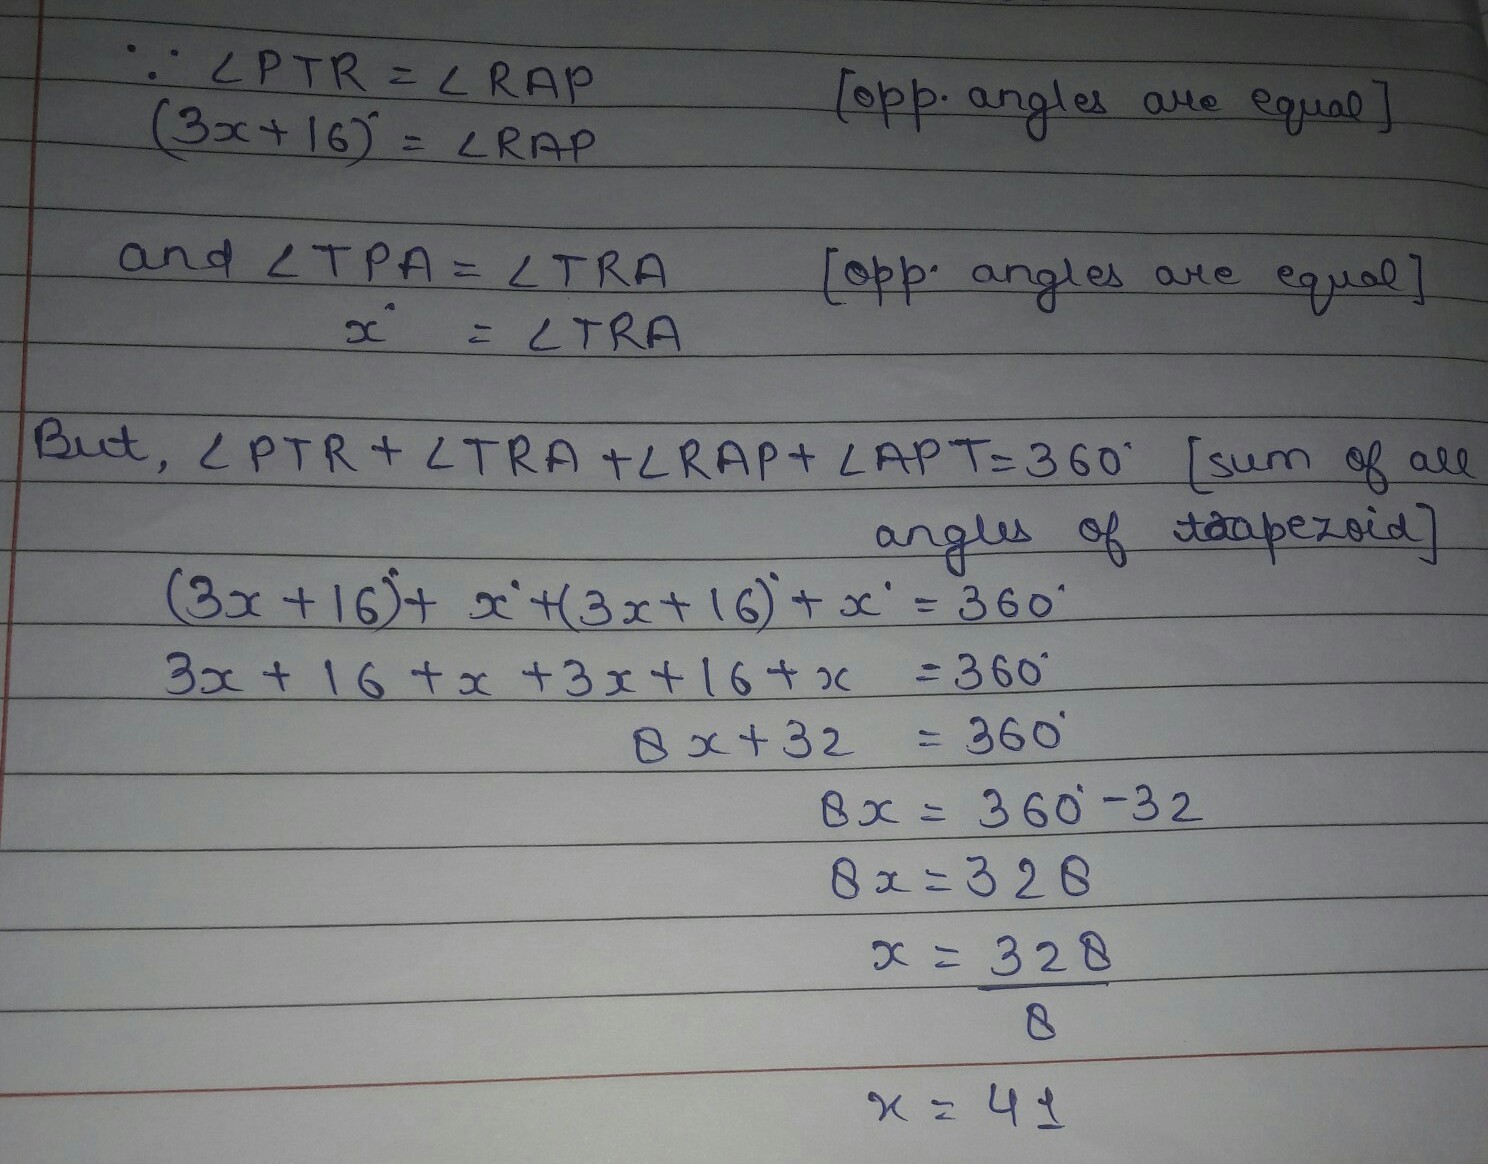 ∵ ∠PTR = ∠RAP [opp. angles are equal]
(3x+16)° = ∠RAP
and ∠TPA = ∠TRA [opp. angles are equal]
x° = ∠TRA
But, ∠PTR + ∠TRA + ∠RAP + ∠APT = 360° [sum of all
angles of trapezoid]
(3x+16)° + x° + (3x+16)° + x° = 360°
3x + 16 + x + 3x + 16 + x = 360°
8x + 32 = 360°
8x = 360° - 32
8x = 328
x = 328
8
x = 41